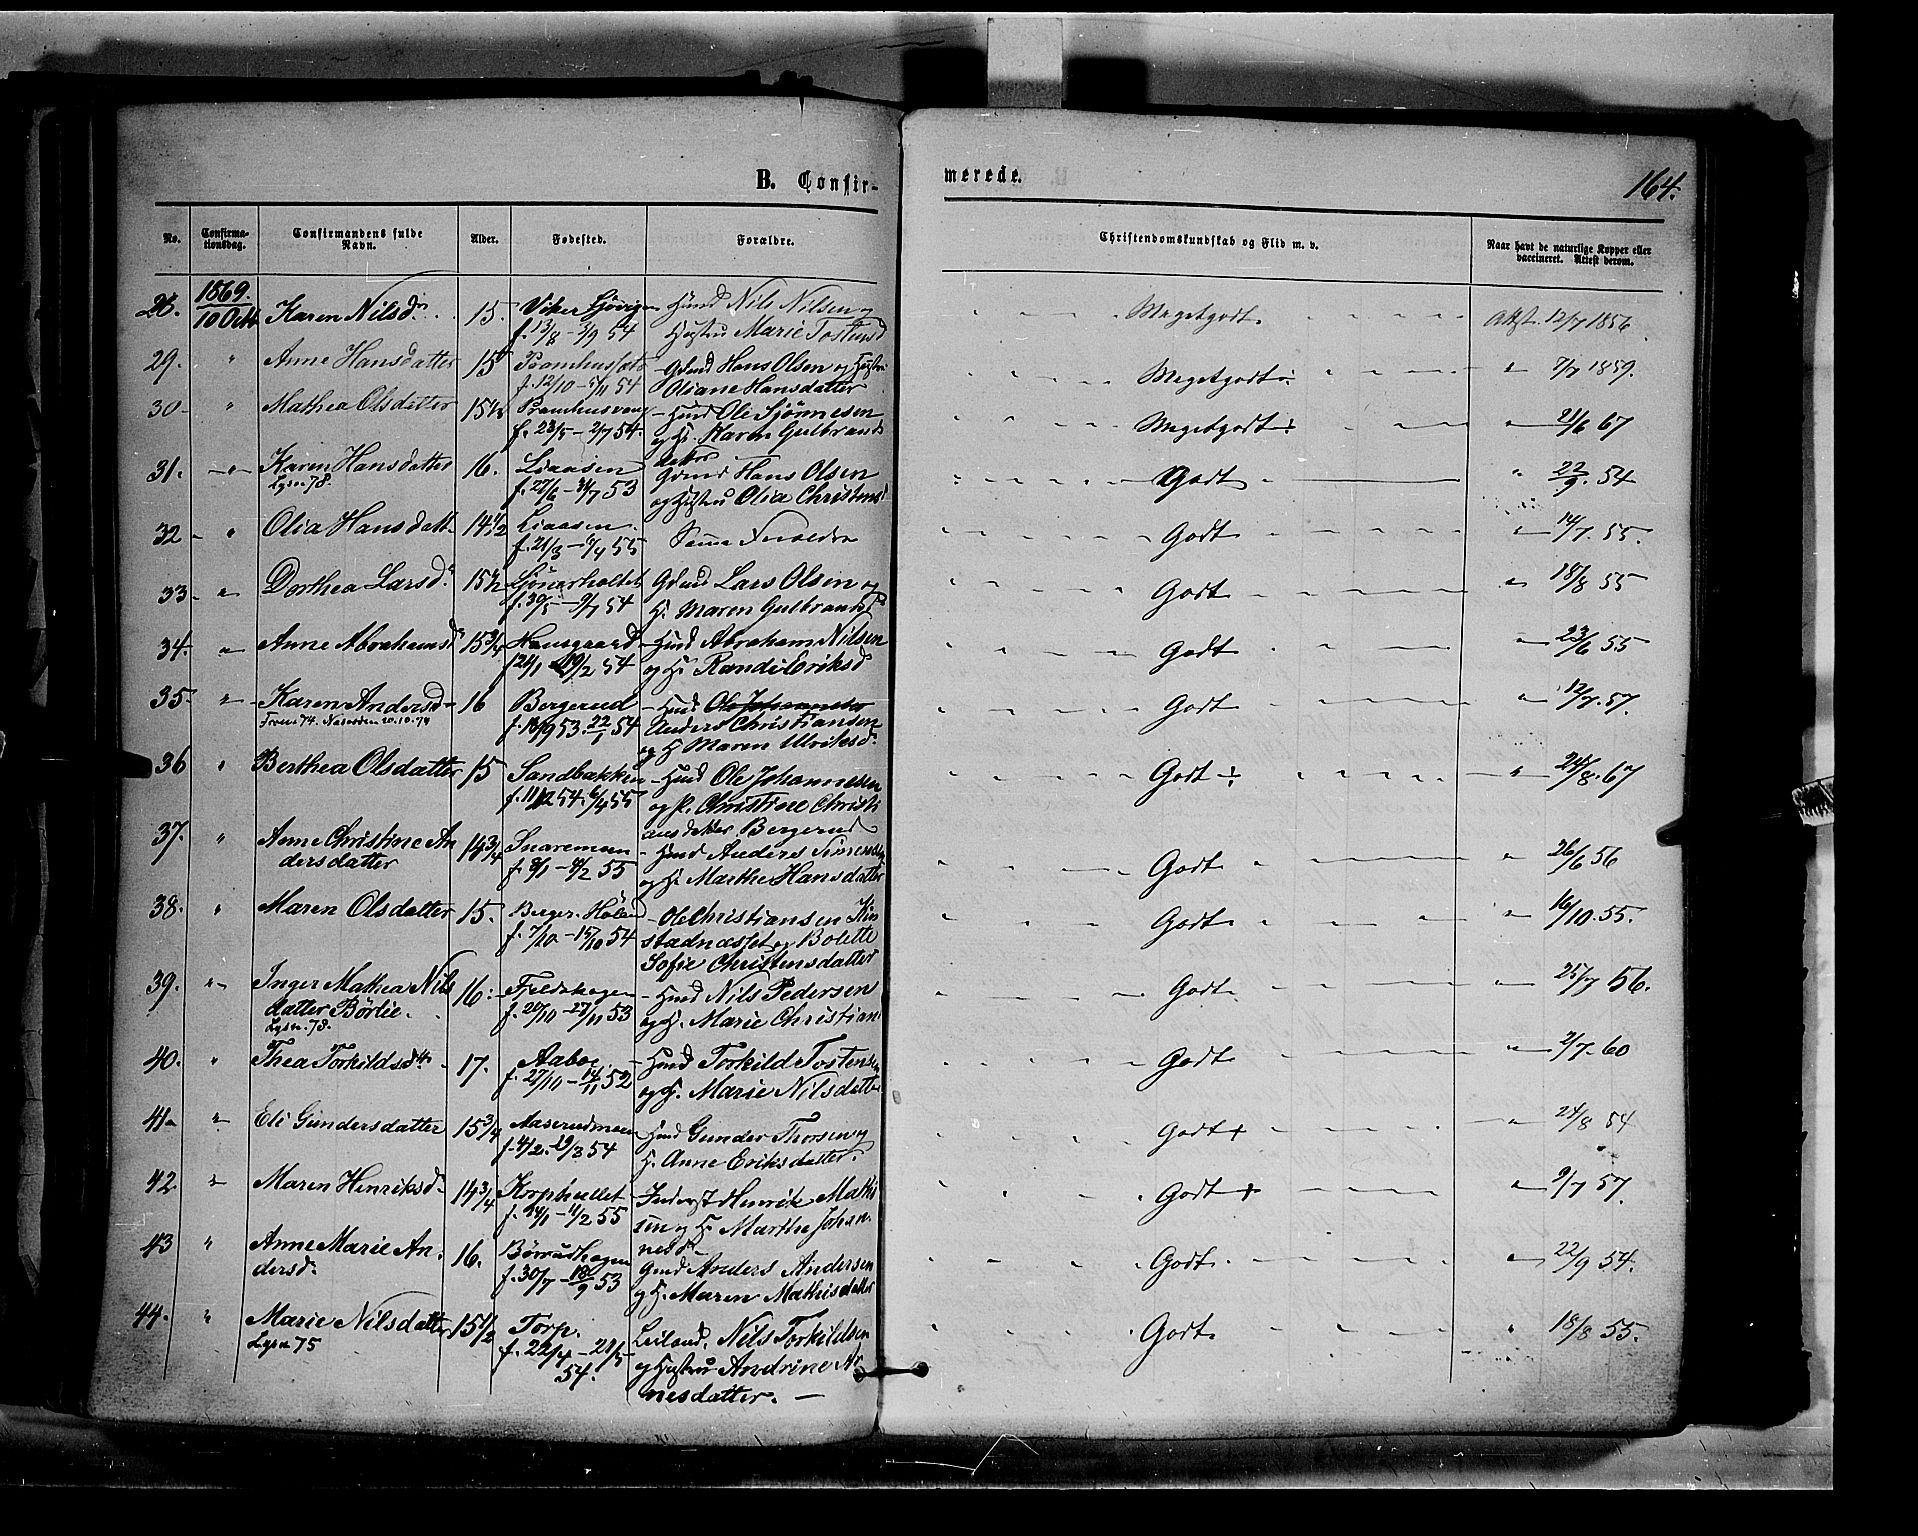 B. Confir-
merede.
164.
No.
Confirma-
tionsdag.
Confirmandens fulde
Navn.
Alder.
Fødested.
Forældre.
Christendomskundskab og Flid m. v.
Naar havt de naturlige Kopper eller
vaccineret. Attest derom.
1869.
10 Octb
28. Karen Nilsdr. 15. Hmd Nils Nilsen og Megetgodt Attst. 12/7 1856
f. 13/8 – 3/9 54 Hustru Marie Tostensd
29. " Anne Hansdatter 15 Gdmd Hans Olsen og Hustru Megetgodt 7/7 1859.
f. 12/10 – 5/11 54 Oliane Hansdatter
30 " Mathea Olsdatter 15 1/2 – Hmd Ole Megetgodt 21/6 67
f. 23/5 – 2/7 54. og H. Karen Gulbrands
datter
31. " Karen Hansdatter 16. Liaasen Gdmd Hans Olsen Godt 22/9. 54
Lysn. 78. f. 27/6 – 31/7 53 og Hustru Olia Christensd
32 " Olia Hansdatt. 14 1/2 Liaasen. Samme Forældre Godt 14/7. 55.
f. 21/3 – 9/4 55
33 " Dorthea Larsd. 15 1/2 Gdmd Lars Olsen og Godt 18/8 55
f. 30/5 – 9/7 54 H. Maren Gulbrandsd
34. " Anne Abrahamsd 15 3/4 Haugaard – Hmd Abraham Nilsen Godt 23/6 55
f 21/1 – 19/2 54 og H. Randi Eriksd
35 " Karen Andersd 16 Bergerud – Hmd Ole Johannesen Godt 12/7. 57.
74. Nasodden 20.10.74 f. 18/9 53. 22/1 54 Anders Christiansen
og H Maren Ulriksd.
36 " Berthea Olsdatter 15 Sandbakken – Hmd Ole Johannesen Godt 24/8. 67
f. 11/12 54. 6/4 55 og H. Christine Christi
ansdatter Bergerud
37. " Anne Christine An 14 3/4 Snaremoen – Hmd Anders Simensen Godt 26/6 56
dersdatter f. 8/1 – 4/2 55 og H. Marthe Hansdatter
38. " Maren Olsdatter 15. Berger. Høland – Ole Christiansen Kin Godt 16/10. 55.
f. 7/10 – 15/10 54 stadnæsset og Bolette
Sofie Christensdatter
39. " Inger Mathea Nils 16. Fjeldskogen – Hmd Nils Pedersen Godt 25/7 56.
datter Børlie. f. 20/10 – 27/11 53 og H. Marie Christian
Lysn. 78.
40. " Thea Torkildsdtr 17. Aaboe – Hmd Torkild Tostensen Godt 2/7. 60
f. 27/10 – 14/11 52 og H. Marie Nilsdatter
41 " Eli Gundersdatter 15 3/4 Aaserudmoen Hmd Gunder Thorsen og Godt 24/8 54
f. 4/2. 19/3 54 H. Anne Eriksdatter.
42 " Maren Henriksd. 14 3/4 Korphullet Inderst Henrik Mathi Godt 9/7 57.
f. 14/1 – 11/2 55 sen og H. Marthe Johan
nesd
43 " Anne Marie An 16. Børrudhagen Gmd Anders Andersen Godt 22/9 54.
dersd. f. 30/7 – 18/9 53 og H. Maren Mathisdatter
44. " Marie Nilsdatter 15 1/2 Torp. Leiland. Nils Torkildsen Godt 18/8 55.
Lysn 75 f. 22/4 – 21/5 og Hustru Andrine Ar
54. nesdatter. –